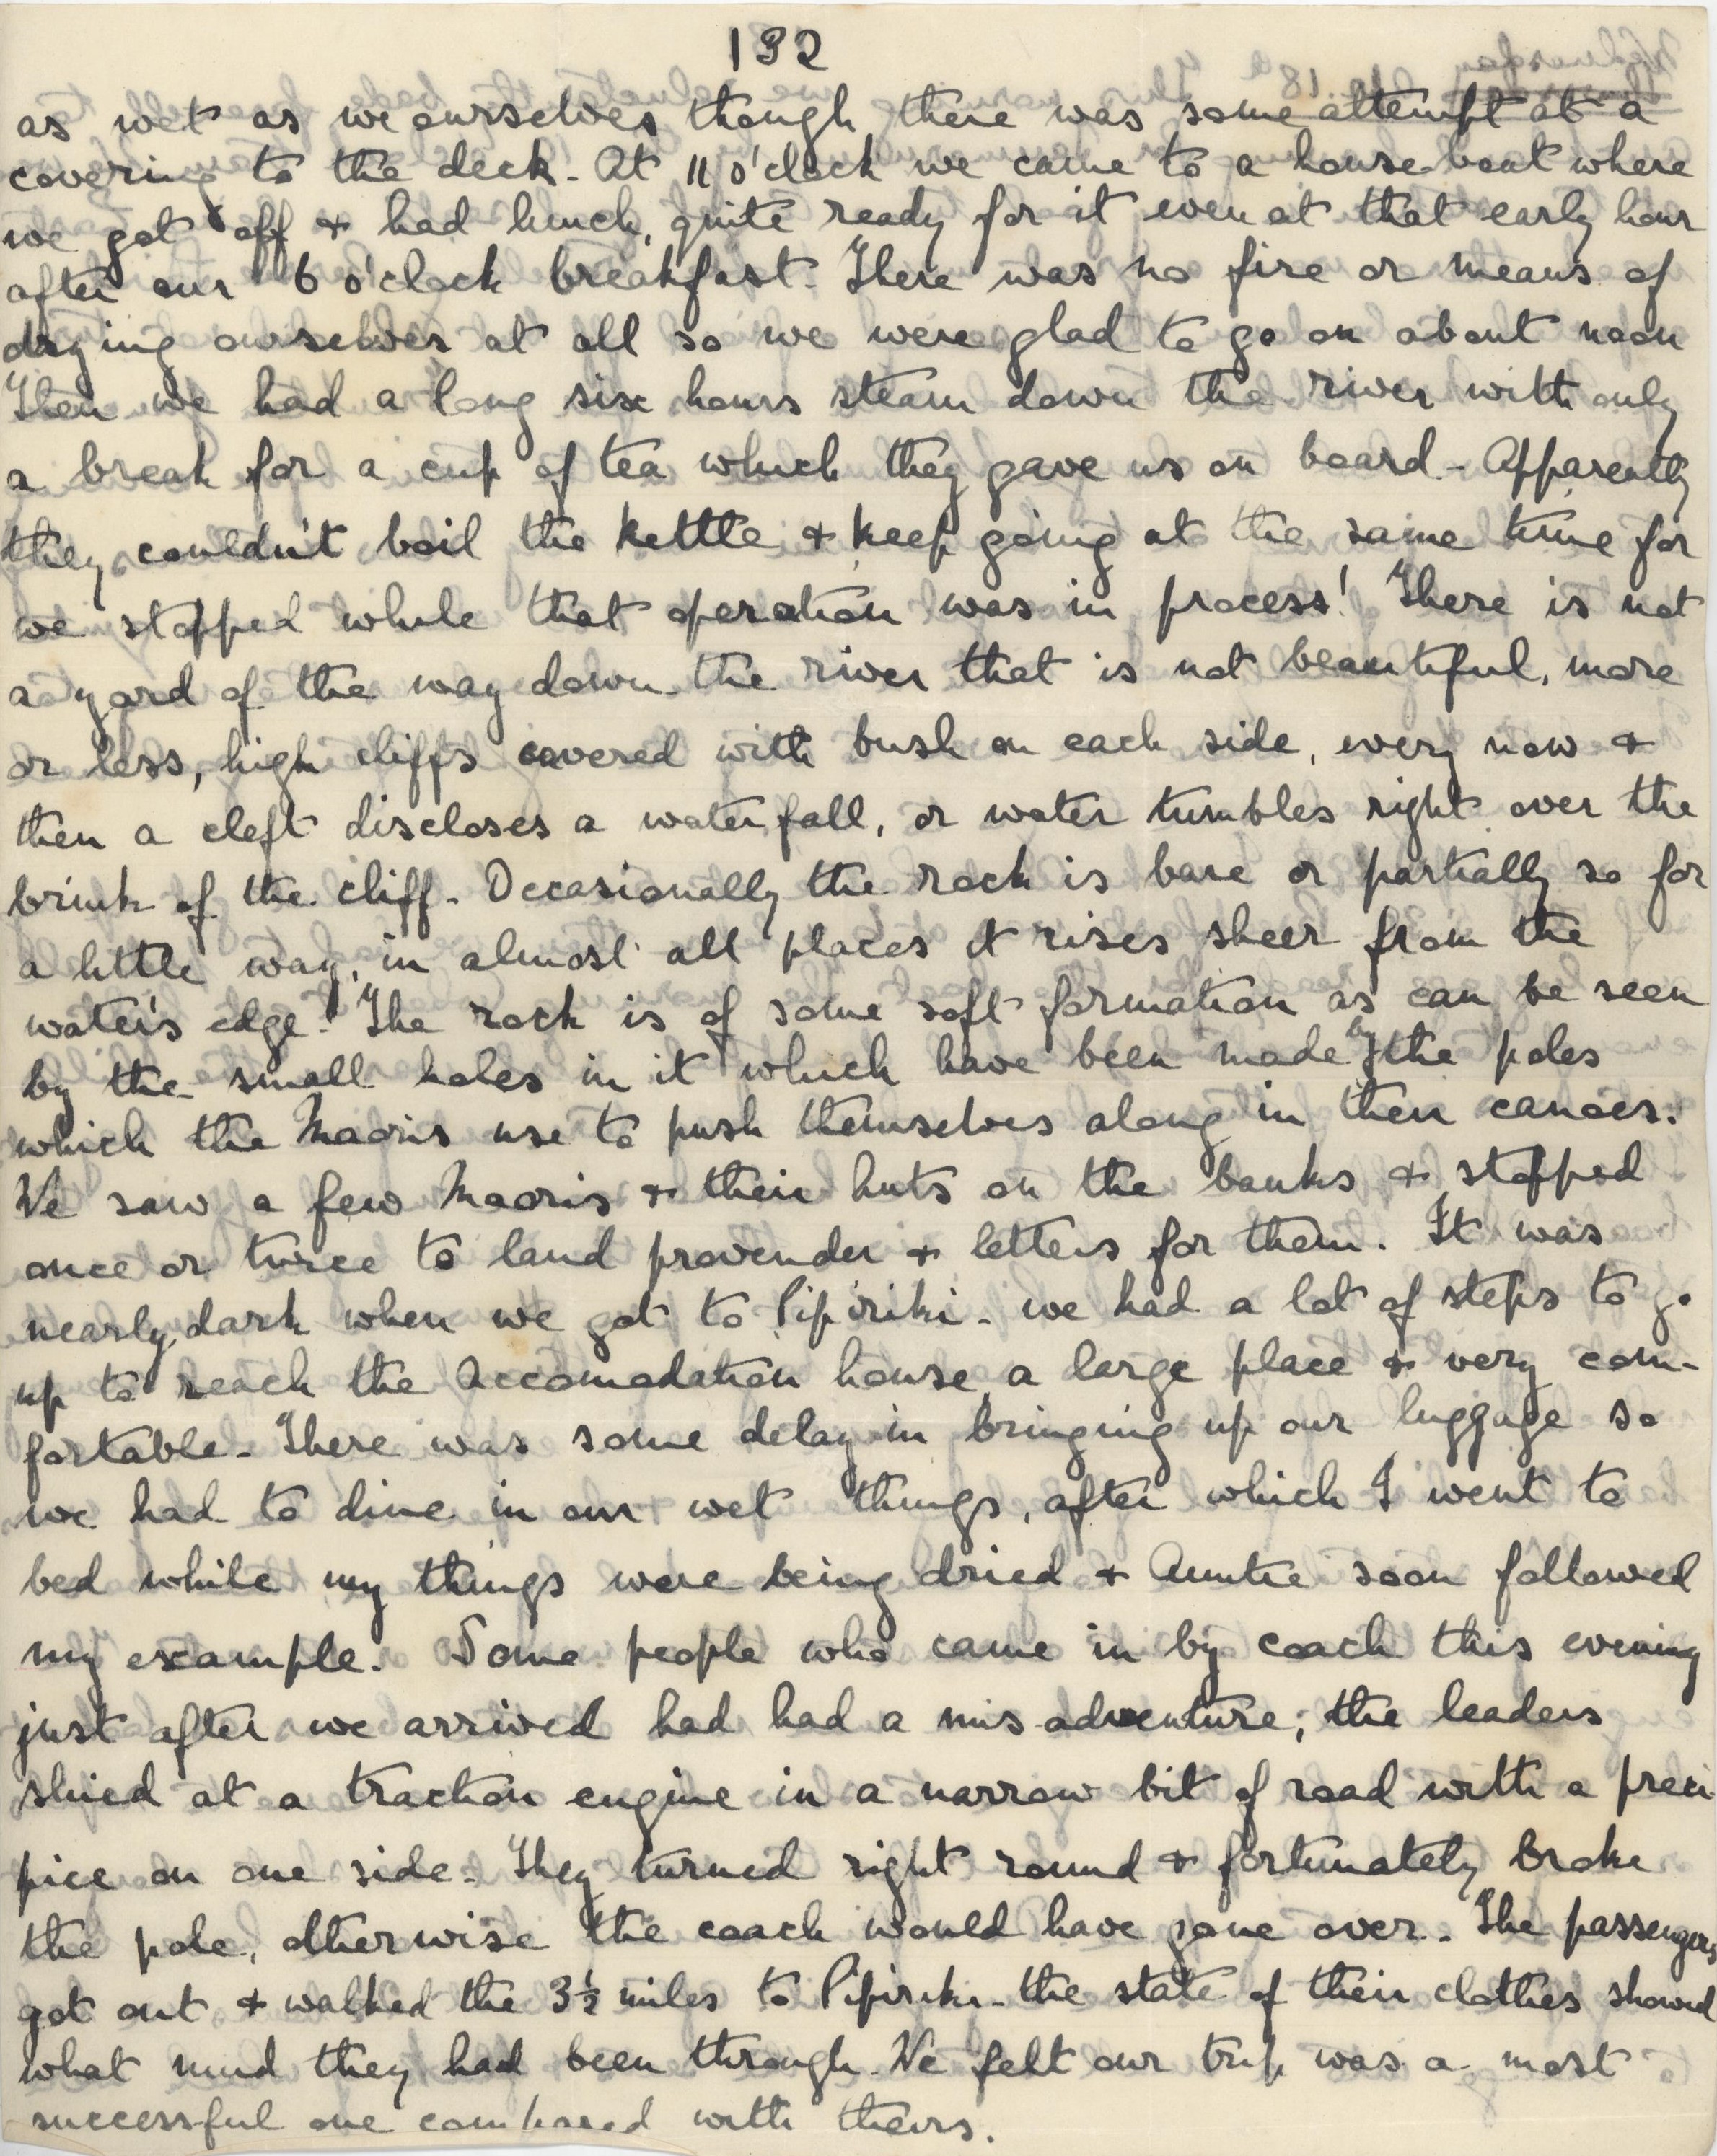 132
as wet as we ourselves though there was some attempt at a
covering to the deck. At 11 o'clock we came to a house-boat where
we got off & had lunch, quite ready for it even at that early hour
after our 6 o'clock breakfast. There was no fire or means of
drying ourselves at all so we were glad to go on about noon
Then we had a long six hours steam down the river with only
a break for a cup of tea which they gave us on board - Apparently
they couldn't boil the kettle & keep going at the same time for
we stopped while that operation was in process! There is not
a yard of the way down the river that is not beautiful, more
or less, high cliffs covered with bush on each side, every now &
then a cleft discloses a waterfall, or water tumbles right over the
brink of the cliff. Occasionally the rock is bare or partially so for
a little way, in almost all places it rises sheer from the
water's edge. The rock is of some soft formation as can be seen
by the small holes in it which have been made by the poles
which the Maoris use to push themselves along in their canoes.
We saw a few Maoris & their huts on the banks & stopped
once or twice to land provender & letters for them. It was
nearly dark when we got to Pipiriki - we had a lot of steps to go
up to reach the accomodation house, a large place & very com-
fortable. There was some delay in bringing up our luggage so
we had to dine in our wet things, after which I went to
bed while my things were being dried & Auntie soon followed
my example. Some people who came in by coach this evening
just after we arrived had had a misadventure; the leaders
shied at a traction engine in a narrow bit of road with a preci
pice on one side. They turned right round & fortunately broke
the pole, otherwise the coach would have gone over. The passengers
got out & walked the 3½ miles to Pipiriki - the state of their clothes showed
what mud they had been through. We felt our trip was a most
successful one compared with theirs.